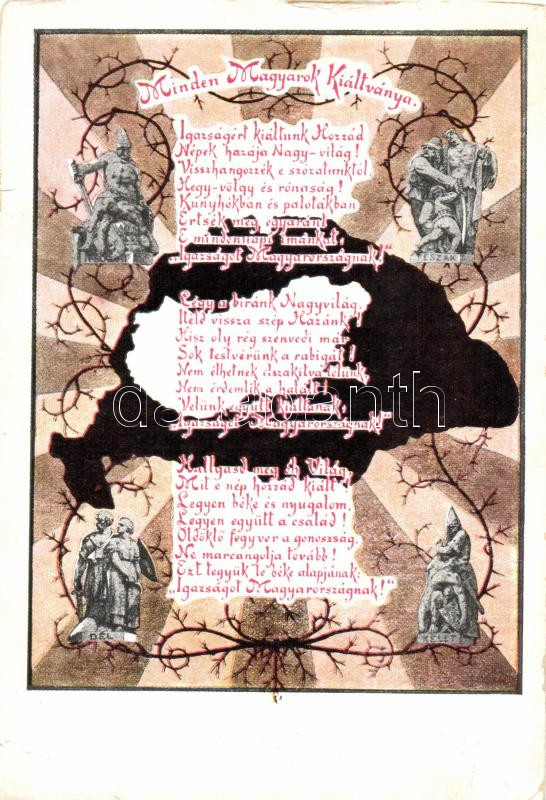 Minden Magyarok Kiáltványa.
Igazságért kiáltunk Hozzád
Népek hazája Nagy-világ!
Visszhangozzék e szózatunktól
Hegy-völgy és rónaság!
Kunyhókban és palotákban
Értsék meg egyaránt
E mindennapi imánkat,
„Igazságot Magyarországnak!"
ÉSZAK
Légy a biránk Nagyvilág,
Itéld vissza szép Hazánk!
Hisz oly rég szenvedi már
Sok testvérünk a rabigát!
Nem élhetnek elszakitva tőlünk,
Nem érdemlik a halált!
Velünk együtt kiáltanak:
„Igazságot Magyarországnak!"
darabanth
Hallgasd meg óh Világ,
Mit e nép hozzád kiált!
Legyen béke és nyugalom,
Legyen együtt a család!
Öldöklő fogyver a gonoszság,
Ne marcangolja tovább!
Ezt tegyük le béke alapjának:
„Igazságot Magyarországnak!"
DÉL
KELET